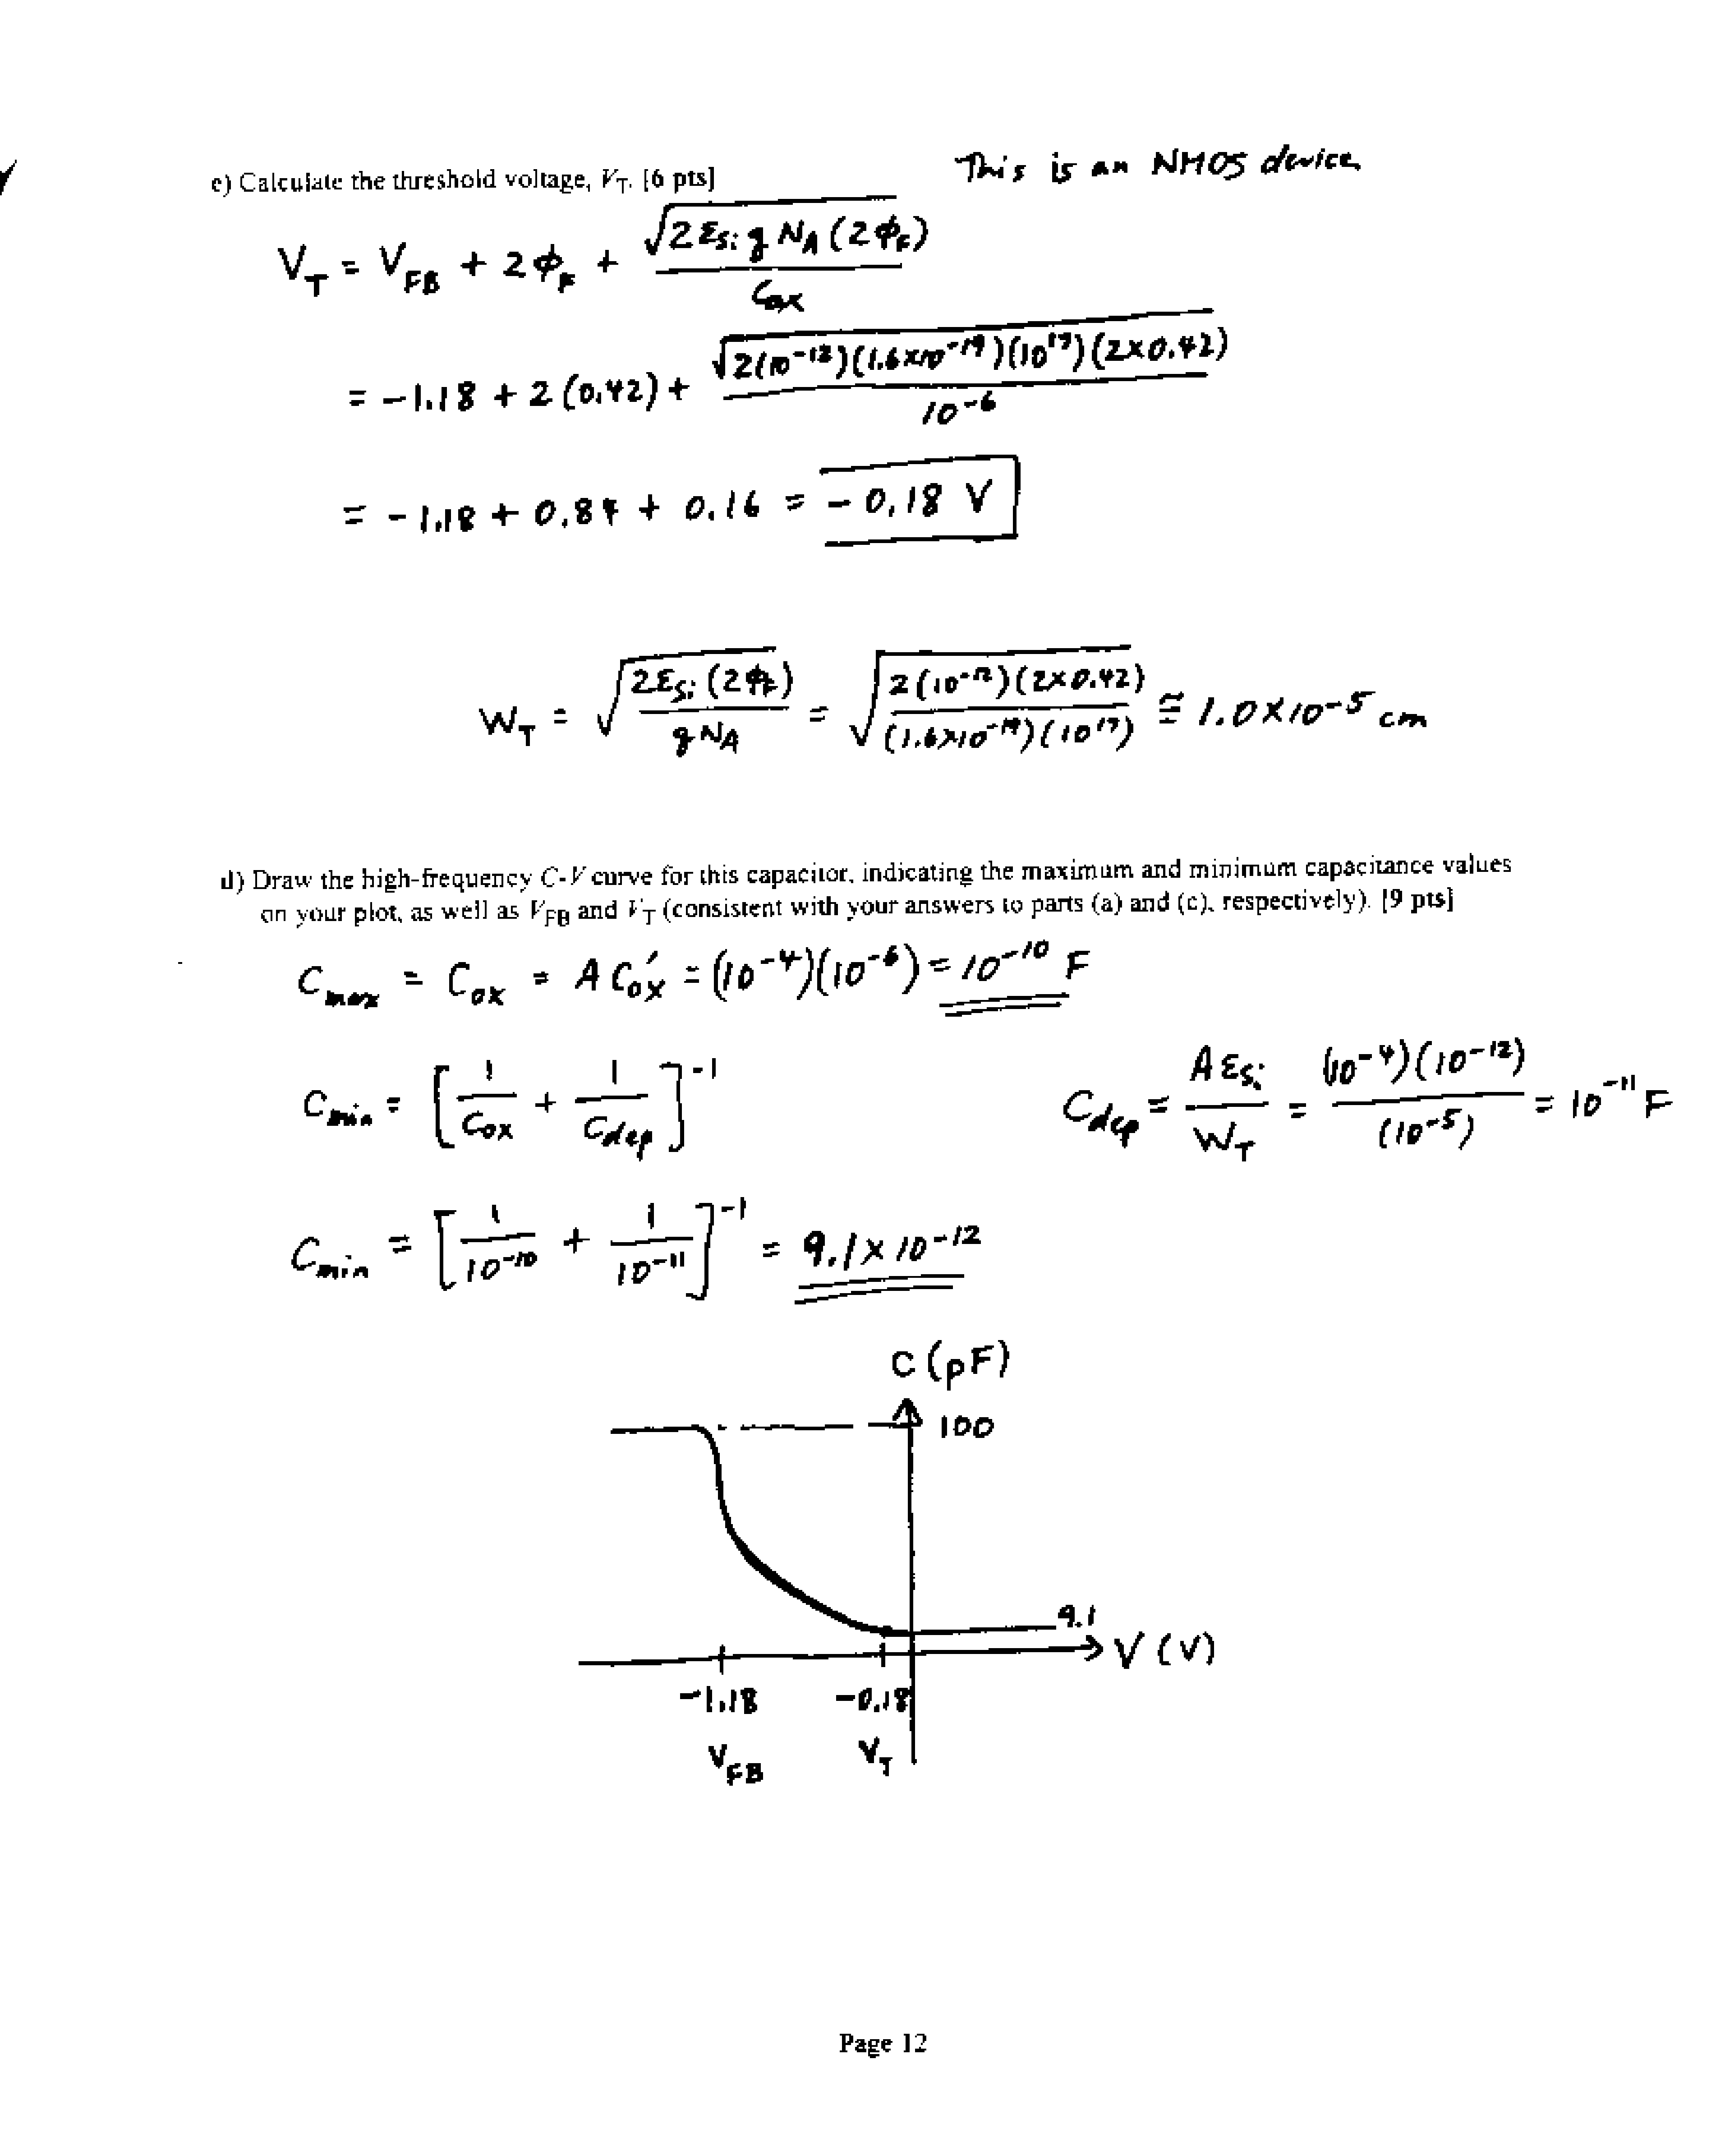 This is an NMOS device
c) Calculate the threshold voltage, V_T. [6 pts]
V_T = V_FB + 2φ_F + √(2ε_Si q N_A (2φ_F)) / C_ox
= -1.18 + 2(0.42) + √(2(10^-12)(1.6×10^-19)(10^17)(2×0.42)) / 10^-6
= -1.18 + 0.84 + 0.16 = -0.18 V
W_T = √(2ε_Si (2φ_F) / qN_A) = √(2(10^-12)(2×0.42) / (1.6×10^-19)(10^17)) ≅ 1.0×10^-5 cm
d) Draw the high-frequency C-V curve for this capacitor, indicating the maximum and minimum capacitance values
on your plot, as well as V_FB and V_T (consistent with your answers to parts (a) and (c), respectively). [9 pts]
C_max = C_ox = A C'_ox = (10^-4)(10^-6) = 10^-10 F
C_min = [1/C_ox + 1/C_dep]^-1
C_dep = Aε_Si / W_T = (10^-4)(10^-12) / (10^-5) = 10^-11 F
C_min = [1/10^-10 + 1/10^-11]^-1 = 9.1×10^-12
C (pF)
100
9.1
V (V)
-1.18 -0.18
V_FB V_T
Page 12